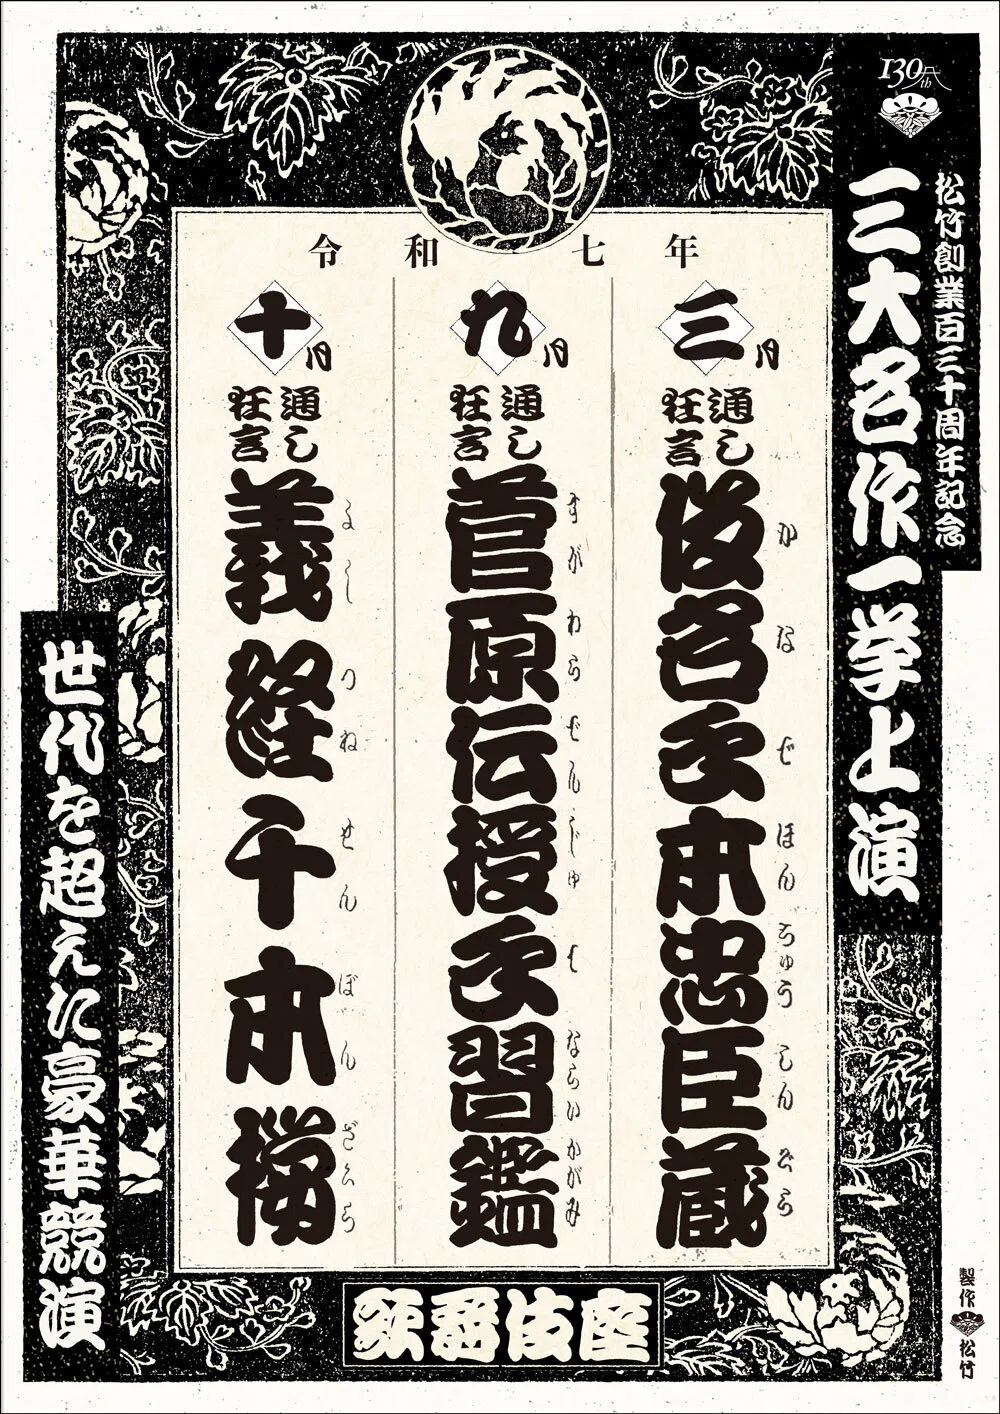 130周年
松竹創業百三十周年記念
三大名作一挙上演
令和七年
三月
通し狂言
仮名手本忠臣蔵
かなでほんちゅうしんぐら
九月
通し狂言
菅原伝授手習鑑
すがわらでんじゅてならいかがみ
十月
通し狂言
義経千本桜
よしつねせんぼんざくら
世代を超えた豪華競演
歌舞伎座
製作 松竹